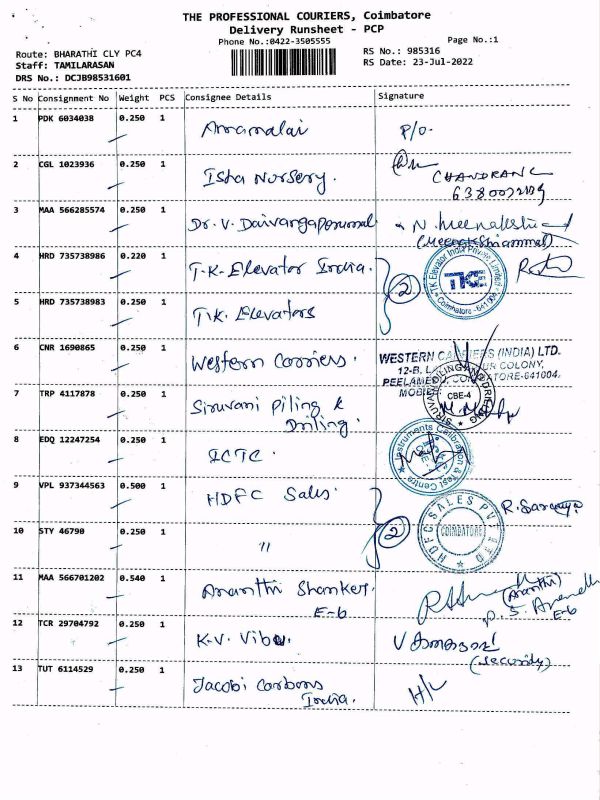 THE PROFESSIONAL COURIERS, Coimbatore
Delivery Runsheet - PCP
Phone No.:0422-3505555
Page No.:1
Route: BHARATHI CLY PC4
RS No.: 985316
Staff: TAMILARASAN
RS Date: 23-Jul-2022
DRS No.: DCJB98531601
S No Consignment No Weight PCS Consignee Details Signature
1 PDK 6034038 0.250 1 Annamalai P/O-
2 CGL 1023936 0.250 1 Isha Nursery. CHANDRAN C
3 MAA 566285574 0.250 1 Dr. V. N. Meenakshi
(Meenakshiammal)
4 HRD 735738986 0.220 1 T.K-Elevator India. 2 TK Elevator India Private Limited Coimbatore - 641004 TKE
5 HRD 735738983 0.250 1 T.K. Elevators
6 CNR 1690865 0.250 1 Western Carriers. WESTERN CARRIERS (INDIA) LTD.
12-B, COLONY,
PEELAMEDU, COIMBATORE-641004.
7 TRP 4117878 0.250 1 Siruvani Piling & CBE-4
Drilling.
8 EDQ 12247254 0.250 1 ICTC. Instruments Calibration & Test Centre
9 VPL 937344563 0.500 1 HDFC Sales. 2 HDFC SALES PVT LTD COIMBATORE
10 STY 46790 0.250 1 "
11 MAA 566701202 0.540 1 Ananthi Shanker. (Ananthi)
E-6 E-6
12 TCR 29704792 0.250 1 K.V. Vibu.
(Security)
13 TUT 6114529 0.250 1 Jacobi Carbons H/L
India.